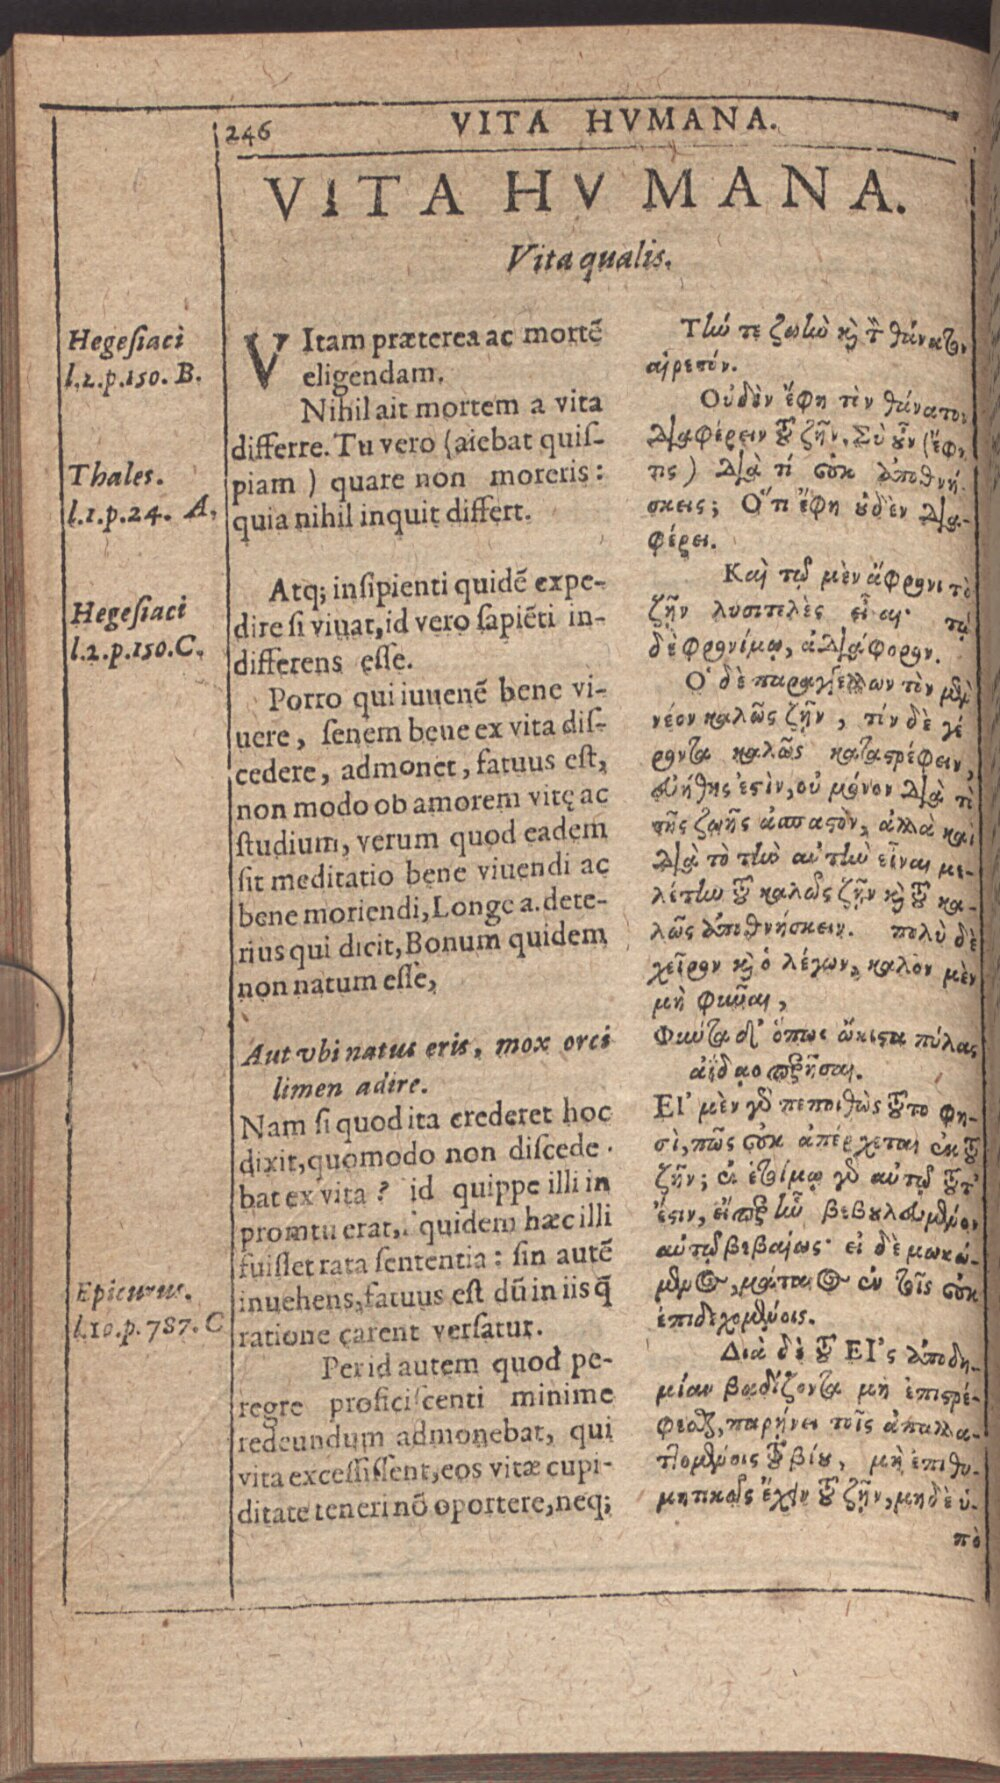 246 VITA HVMANA.
VITA HVMANA.
Vita qualis.
Hegesiaci
l.2.p.150. B.
Thales.
l.1.p.24. A.
Hegesiaci
l.2.p.150.C.
Epicurus.
l.10.p.787. C
VItam præterea ac mortē
eligendam.
Nihil ait mortem a vita
differre. Tu vero (aiebat quiſ-
piam) quare non moreris:
quia nihil inquit differt.
Atq; inſipienti quidē expe-
dire ſi viuat, id vero ſapiēti in-
differens eſſe.
Porro qui iuuenē bene vi-
uere, ſenem bene ex vita diſ-
cedere, admonet, fatuus eſt,
non modo ob amorem vitę ac
ſtudium, verum quod eadem
ſit meditatio bene viuendi ac
bene moriendi, Longe a. dete-
rius qui dicit, Bonum quidem
non natum eſſe,
Aut vbi natus eris, mox orci
limen adire.
Nam ſi quod ita crederet hoc
dixit, quomodo non diſcede-
bat ex vita? id quippe illi in
promtu erat, quidem hæc illi
fuiſſet rata ſententia: ſin autē
inuehens, fatuus eſt dū in iis q̄
ratione carent verſatur.
Per id autem quod pe-
regre proficiſcenti minime
redeundum admonebat, qui
vita exceſſiſſent, eos vitæ cupi-
ditate teneri nō oportere, neq;
Τήν τε ζωὴν καὶ τὸν θάνατον
αἱρετόν.
Οὐδὲν ἔφη τὸν θάνατον
διαφέρειν τοῦ ζῆν. Σὺ οὖν (ἔφη
τις) διὰ τί οὐκ ἀποθνή-
σκεις; Ὅτι ἔφη οὐδὲν δια-
φέρει.
Καὶ τῷ μὲν ἄφρονι τὸ
ζῆν λυσιτελὲς εἶναι· τῷ
δὲ φρονίμῳ, ἀδιάφορον.
Ὁ δὲ παραγγέλλων τὸν μὲν
νέον καλῶς ζῆν, τὸν δὲ γέ
ροντα καλῶς καταστρέφειν,
εὐήθης ἐστὶν, οὐ μόνον διὰ τὸ
τῆς ζωῆς ἀσπαστὸν, ἀλλὰ καὶ
διὰ τὸ τὴν αὐτὴν εἶναι με-
λέτην τοῦ καλῶς ζῆν καὶ τοῦ κα-
λῶς ἀποθνήσκειν. πολὺ δὲ
χεῖρον καὶ ὁ λέγων, καλὸν μὲν
μὴ φῦναι,
Φύντα δ' ὅπως ὤκιστα πύλας
ἀΐδαο περῆσαι.
Εἰ μὲν γὰρ πεποιθὼς τοῦτο φη-
σὶ, πῶς οὐκ ἀπέρχεται ἐκ τοῦ
ζῆν; ἐν ἑτοίμῳ γὰρ αὐτῷ τοῦτ'
ἔστιν, εἴπερ ἦν βεβουλευμένον
αὐτῷ βεβαίως· εἰ δὲ μωκώ-
μενος, μάταιος ἐν τοῖς οὐκ
ἐπιδεχομένοις.
Διὰ δὲ τοῦ Εἰς ἀποδη-
μίαν βαδίζοντα μὴ ἐπιστρέ-
φεσθαι, παρῄνει τοῖς ἀπαλλα-
ττομένοις τοῦ βίου, μὴ ἐπιθυ-
μητικῶς ἔχειν τοῦ ζῆν, μηδὲ ὑ-
πὸ